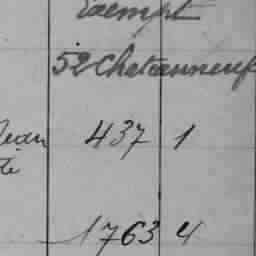 Exempt
52 Chateauneuf
Jean 437 1
de
1763 4